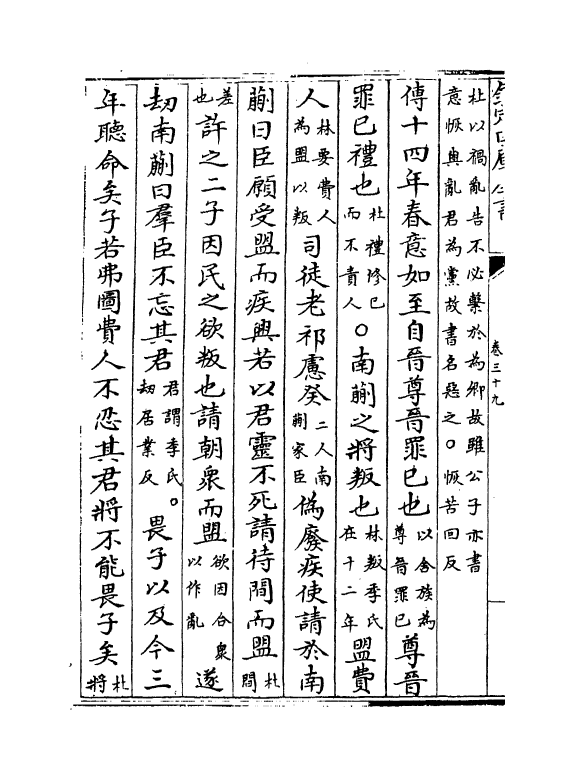 欽定四庫全書
卷三十九
杜以禍亂告不必繫於為卿故雖公子亦書
意恢與亂君為黨故書名惡之○恢苦回反
傳十四年春意如至自晉尊晉罪已也以舍族為尊晉罪已尊晉
罪已禮也杜禮脩已而不責人○南蒯之將叛也林叛季氏在十二年盟費
人林要費人為盟以叛司徒老祁慮癸二人南蒯家臣偽廢疾使請於南
蒯曰臣願受盟而疾興若以君靈不死請待間而盟杜間
差也許之二子因民之欲叛也請朝衆而盟欲因合衆以作亂遂
劫南蒯曰羣臣不忘其君君謂季氏劫居業反。畏子以及今三
年聽命矣子若弗圖費人不忍其君將不能畏子矣杜將